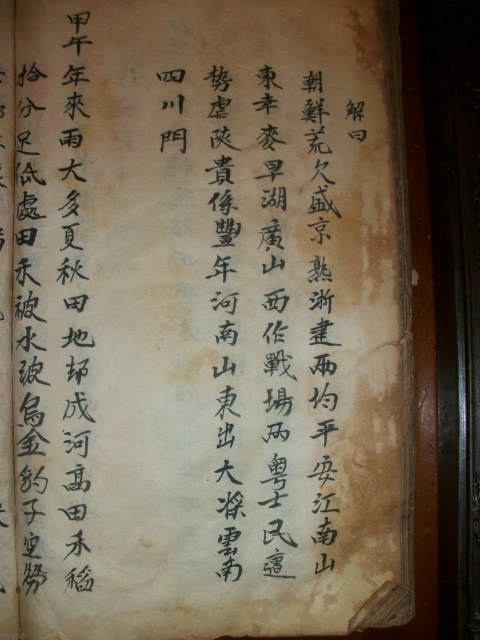 解曰
朝鮮荒欠盛京熟浙建兩均平安江南山
東幸麥早湖廣山西作戰場兩粵士民遭
勢虐陝貴係豐年河南山東出大災雲南
四川門
甲午年來雨大多夏秋田地却成河高田禾稔
拾分足低處田禾被水波烏金豹子空勞